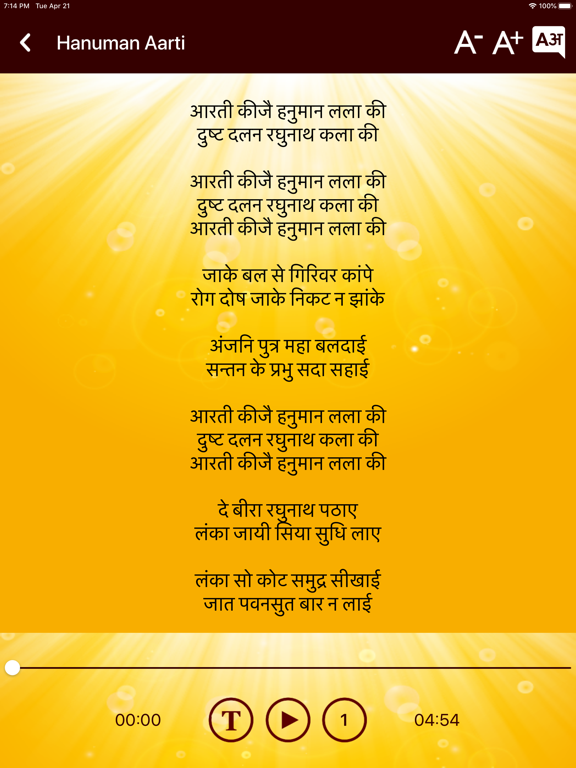 7:14 PM Tue Apr 21 100%
Hanuman Aarti A- A+ Aअ
आरती कीजै हनुमान लला की
दुष्ट दलन रघुनाथ कला की
आरती कीजै हनुमान लला की
दुष्ट दलन रघुनाथ कला की
आरती कीजै हनुमान लला की
जाके बल से गिरिवर कांपे
रोग दोष जाके निकट न झांके
अंजनि पुत्र महा बलदाई
सन्तन के प्रभु सदा सहाई
आरती कीजै हनुमान लला की
दुष्ट दलन रघुनाथ कला की
आरती कीजै हनुमान लला की
दे बीरा रघुनाथ पठाए
लंका जायी सिया सुधि लाए
लंका सो कोट समुद्र सीखाई
जात पवनसुत बार न लाई
00:00 T 1 04:54